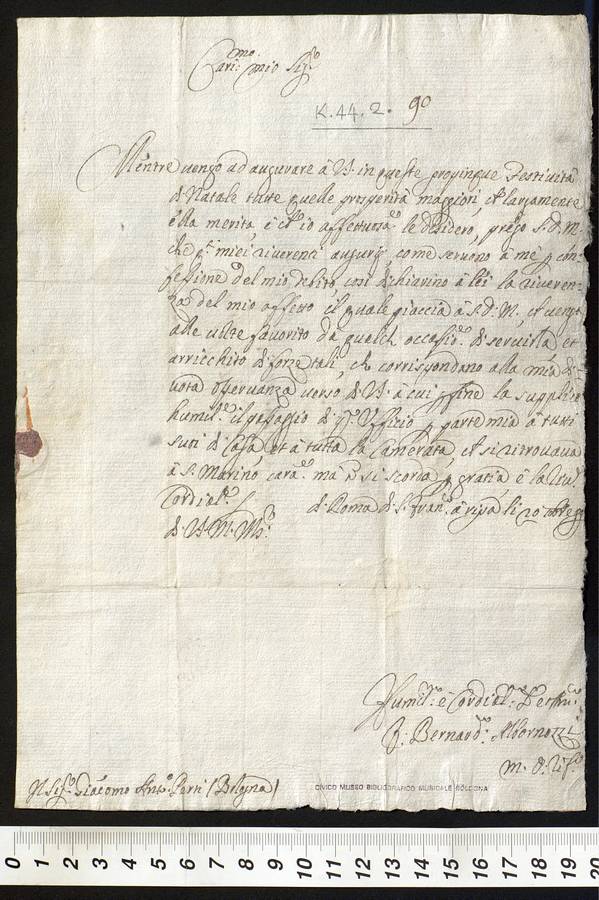 Car.mo mio Sig.e
K.44.2. 90
Mentre uengo ad augurare à V.S. in queste propinque Festiuità
di Natale tutte quelle prosperità maggiori, che largamente
ella merita, è ch'io affettuosam.e le desidero, prego S.D.M.
che miei riuerenti augurij, come seruono à me con-
fessione del mio debito, così dichiarino à lei la riueren-
za del mio affetto, il quale piaccia à S.D.M., ch'uenga
alle uolte fauorito da qualch'occasio.e di seruirla, et
arricchito di forze tali, che corrispondano alla mia di-
uota osseruanza uerso di V.S. à cui fine la supplico
humil.e il passaggio di q.to Vfficio p parte mia à tutti
suoi di Casa, et à tutta la Camerata, che si ritrouaua
à S. Marino, cara.e mà si scorda, p gratia è la
Cordial.e di Roma di S. Fran.co à ripa li 20
di V.S. M.
Humil.e è Cordial.e
F. Bernard.o Albornozzi
m. C.
Il Sig.e Giácomo Ant.o Perti (Bologna)
CIVICO MUSEO BIBLIOGRAFICO MUSICALE BOLOGNA
0 1 2 3 4 5 6 7 8 9 10 11 12 13 14 15 16 17 18 19 20